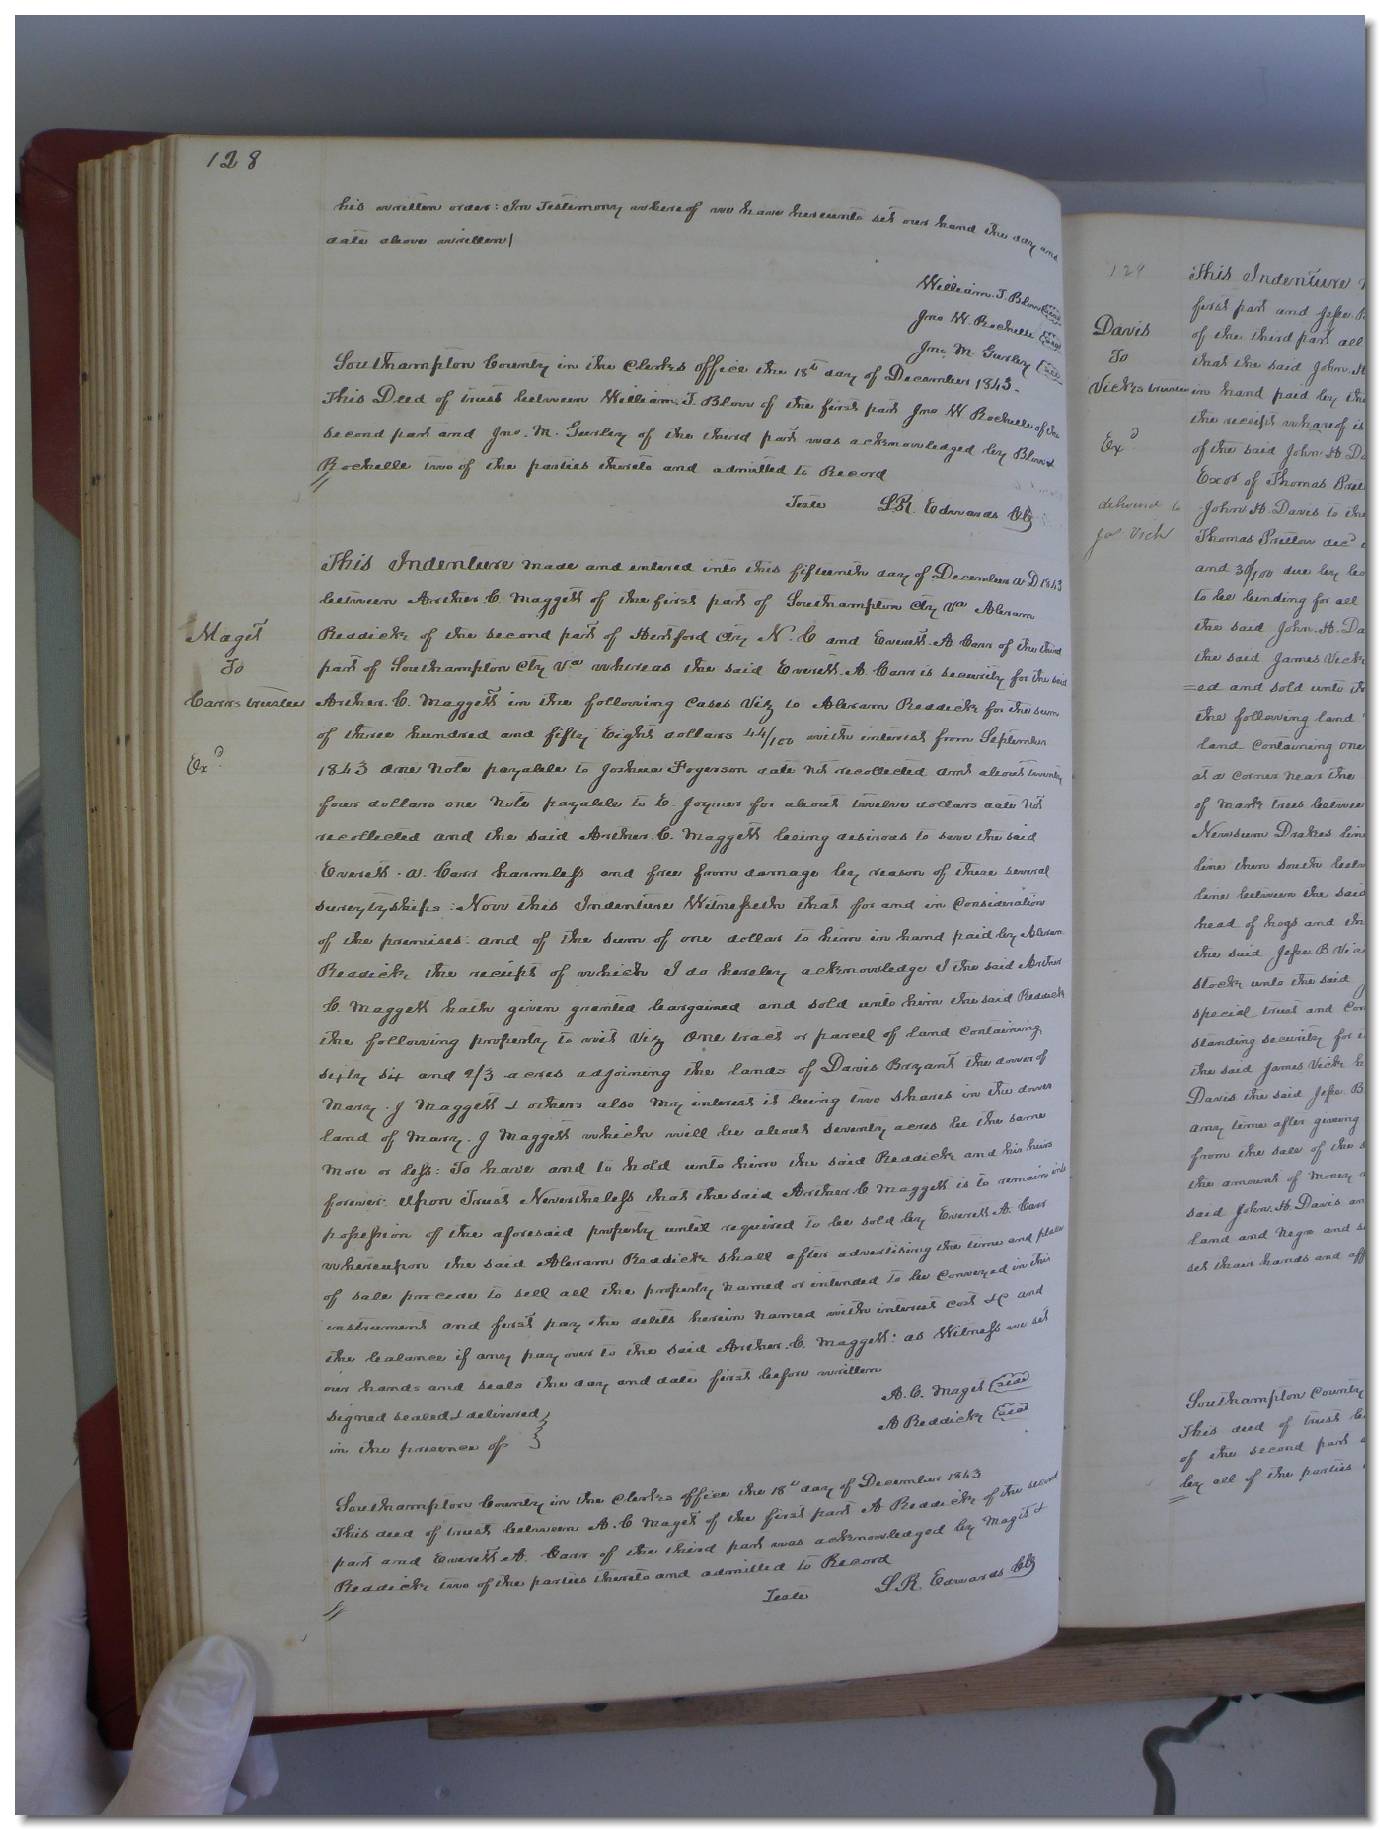 128
his written order: In Testimony whereof we have hereunto set our hand the day and
date above written
William. T. Blow Seal
Jno W. Rochelle Seal
Jno. M. Gurley Seal
Southampton County in the Clerks office the 18th day of December 1843.
This Deed of trust between William. T. Blow of the first part Jno W Rochelle of the
second part and Jno. M. Gurley of the third part was acknowledged by Blow &
Rochelle two of the parties thereto and admitted to Record
Teste L.R. Edwards Clk
This Indenture made and entered into this fifteenth day of December A D 1843
between Arther. C. Maggett of the first part of Southampton Cty Va Abram
Magit
Reddick of the second part of Hertford Cty N. C and Everett. A Carr of the third
To
part of Southampton Cty Va whereas the said Everett. A. Carr is security for the said
Carrs trustee
Arther. C. Maggett in the following Cases Viz to Abram Reddick for the sum
of three hundred and fifty Eight dollars 44/100 with interest from September
Exd
1843 one Note payable to Joshua Fogerson date not recollected amt about twenty
four dollars one Note payable to E. Joyner for about twelve dollars date not
recollected and the said Arther. C. Maggett being desirous to save the said
Everett. A. Carr harmless and free from damage by reason of these several
suretyships: Now this Indenture Witnesseth that for and in Consideration
of the premises: and of the sum of one dollar to him in hand paid by Abram
Reddick the receipt of which I do hereby acknowledge I the said Arther
C. Maggett hath given granted bargained and sold unto him the said Reddick
the following property to wit Viz One tract or parcel of land Containing
sixty six and 2/3 acres adjoining the lands of Davis Bryant the dower of
Mary. J Maggett & others also my interest it being two shares in the dower
land of Mary. J Maggett which will be about seventy acres be the same
more or less: To have and to hold unto him the said Reddick and his heirs
forever. Upon Trust Nevertheless that the said Arther C Maggett is to remain in
possession of the aforesaid property until required to be sold by Everett A. Carr
whereupon the said Abram Reddick shall after advertising the time and place
of sale procede to sell all the property named or intended to be Conveyed in this
instrument and first pay the debts herein named with interest cost &C and
the balance if any pay over to the said Arther. C. Maggett: as Witness we set
our hands and seals the day and date first before written
signed sealed & delivered
A. C. Magit Seal
in the presence of
A Reddick Seal
Southampton County in the Clerks office the 18th day of December 1843
This deed of trust between A. C Magit of the first part A Reddick of the second
part and Everett A. Carr of the third part was acknowledged by Magit &
Reddick two of the parties thereto and admitted to Record
Teste L R Edwards Clk
129
This Indenture
first part and Jesse
Davis
of the third part all
To
that the said John. H
Vicks trustee
in hand paid by the
the receipt whereof is
Exd
of the said John. H Da
Exor of Thomas Pret
delivered to
John H. Davis to the
Jas Vick
Thomas Pretlow decd
and 30/100 due by
to be binding for all
the said John. H. Da
the said James Vick
=ed and sold unto th
the following land
land Containing one
at a corner near the
of mark trees between
Newsum Drakes line
line then south
line between the said
head of hogs and th
the said Jesse B Vi
stock unto the said
special trust and Con
standing security for
the said James Vick h
Davis the said Jesse B
any time after giving
from the sale of the s
the amount of Money
said John. H. Davis an
land and Negro and s
set their hands and aff
Southampton County
This deed of trust be
of the second part
by all of the parties